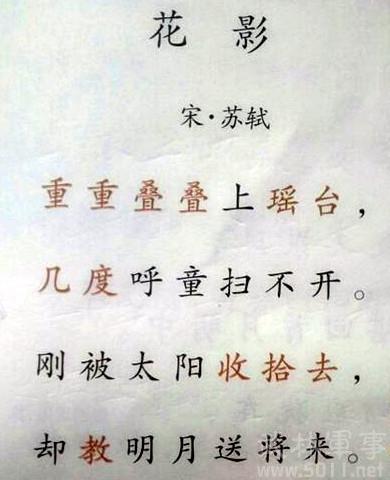 花影
宋·苏轼
重重叠叠上瑶台，
几度呼童扫不开。
刚被太阳收拾去，
却教明月送将来。
www.5011.net